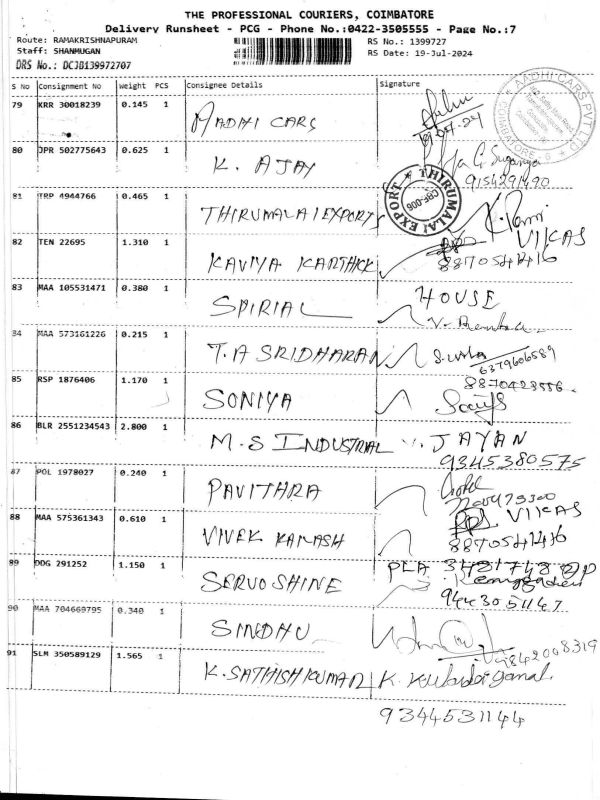 THE PROFESSIONAL COURIERS, COIMBATORE
Delivery Runsheet - PCG - Phone No.:0422-3505555 - Page No.:7
Route: RAMAKRISHNAPURAM
RS No.: 1399727
Staff: SHANMUGAN
RS Date: 19-Jul-2024
DRS No.: DCJB139972707
S No Consignment No Weight PCS Consignee Details Signature
79 KRR 30018239 0.145 1
AADHI CARS
AADHI CARS PVT LTD
COIMBATORE
80 JPR 502775643 0.625 1
K. AJAY
9154291490
81 TRP 4944766 0.465 1
THIRUMALAI EXPORTS
THIRUMALAI EXPORT
CBE-006
82 TEN 22695 1.310 1
KAVIYA KARTHICK
VIKAS
8870541416
83 MAA 105531471 0.380 1
SPIRIAL HOUSE
84 MAA 573161226 0.215 1
T.A SRIDHARAN
6379606589
85 RSP 1876406 1.170 1
SONIYA
8870423556
86 BLR 2551234543 2.800 1
M.S INDUSTRIAL JAYAN
9345380575
87 POL 1978027 0.240 1
PAVITHRA
88 MAA 575361343 0.610 1
VIVEK KANASH
VIKAS
8870541416
89 DDG 291252 1.150 1
SERVO SHINE
9443051147
90 MAA 704669795 0.340 1
SINDHU
9842008319
91 SLM 350589129 1.565 1
K. SATHISH KUMAR
9344531144